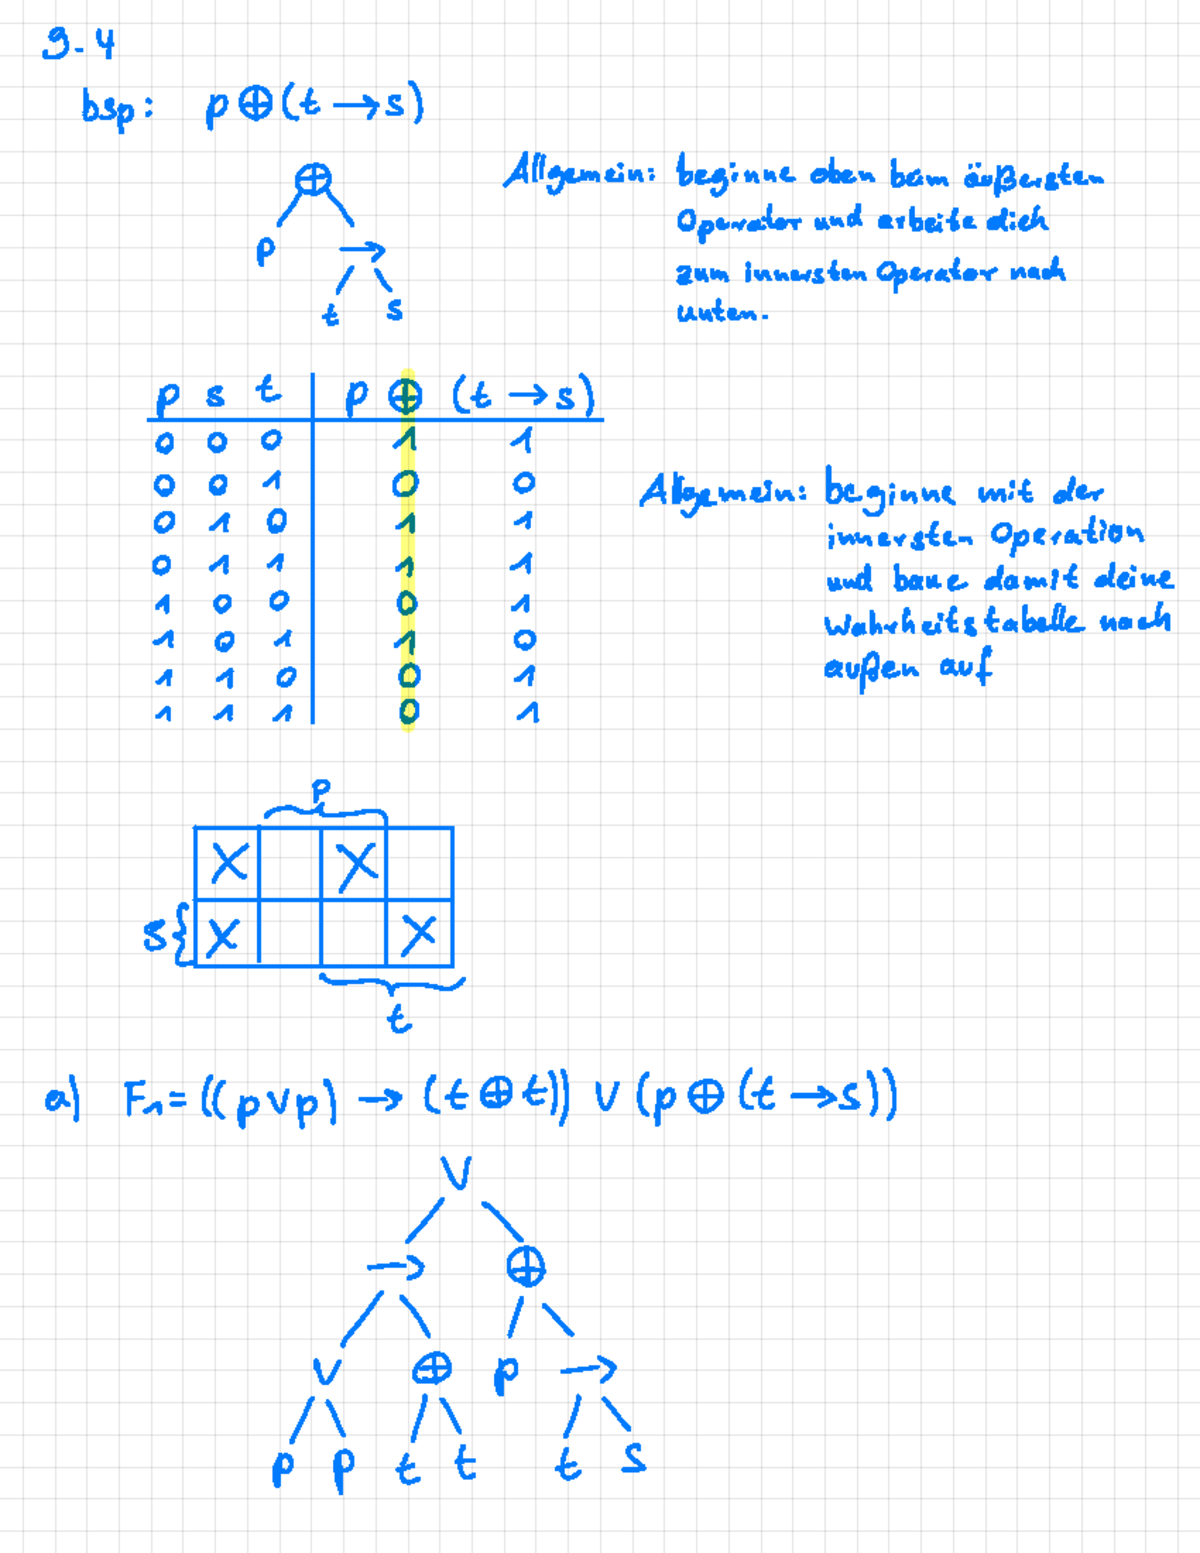 9.4
bsp: p ⊕ (t → s)
⊕
p →
t s
Allgemein: beginne oben beim äußersten
Operator und arbeite dich
zum innersten Operator nach
unten.
p s t | p ⊕ (t → s)
0 0 0 | 1 1
0 0 1 | 0 0
0 1 0 | 1 1
0 1 1 | 1 1
1 0 0 | 0 1
1 0 1 | 1 0
1 1 0 | 0 1
1 1 1 | 0 1
Allgemein: beginne mit der
innersten Operation
und baue damit deine
Wahrheitstabelle nach
außen auf
p
X X
s X X
t
a) F₁ = ((p ∨ p) → (t ⊕ t)) ∨ (p ⊕ (t → s))
∨
→ ⊕
∨ ⊕ p →
p p t t t s